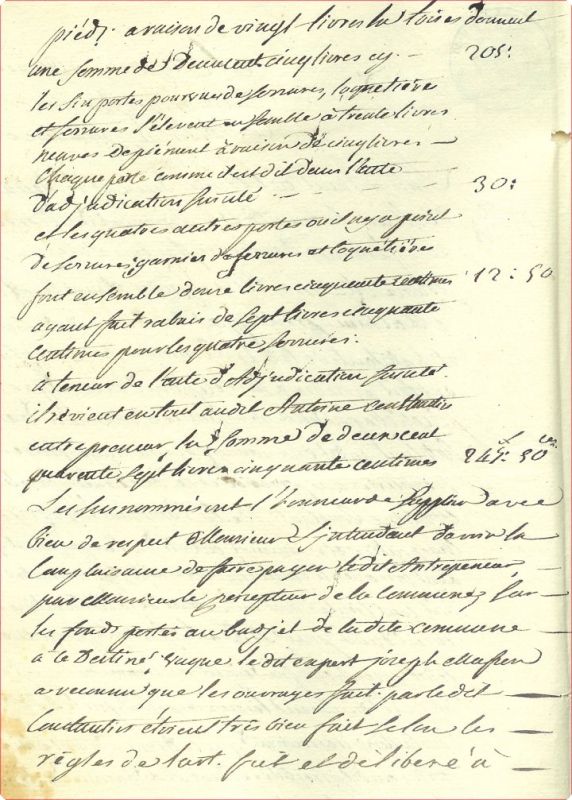 piéds a raison de vingt livres la toises donnent
une somme de Deuxcent cinq livres cy - 205:
les six portes pourvues de serrures, loquetière
et serrures s'élevent ensemble à trente livres
neuves de piémont à raison de cinq livres -
Chaque porte comme est dit dans l'acte
D'adjudication susuté - - - 30:
et les quatres autres portes où il n'y a point
de serrures, garnier de ferrures et loquetière
font ensemble douze livres cinquante centimes 12:50
ayant fait rabais de sept livres cinquante
Centimes pour les quatre serrures.
à teneur de l'acte d'Adjudication susuté
il révient en tout audit Antoine
entrepreneur la somme de deux cent
quarante sept livres cinquante centimes 247:50
Les susnommés ont l'honneur de supplier avec
bien de respect Monsieur L'jntendant d'avoir la
Complaisance de faire payer ledit Antrepeneur
par Monsieur le percepteur de la Commune, sur
les fonds portés au budjet de ladite commune
à le Destiné, vaque le dit expert joseph
a reconnu que les ouvrages fait par le dit
Constantin étoient très bien fait selon les
règles de l'art. fait et deliberé à